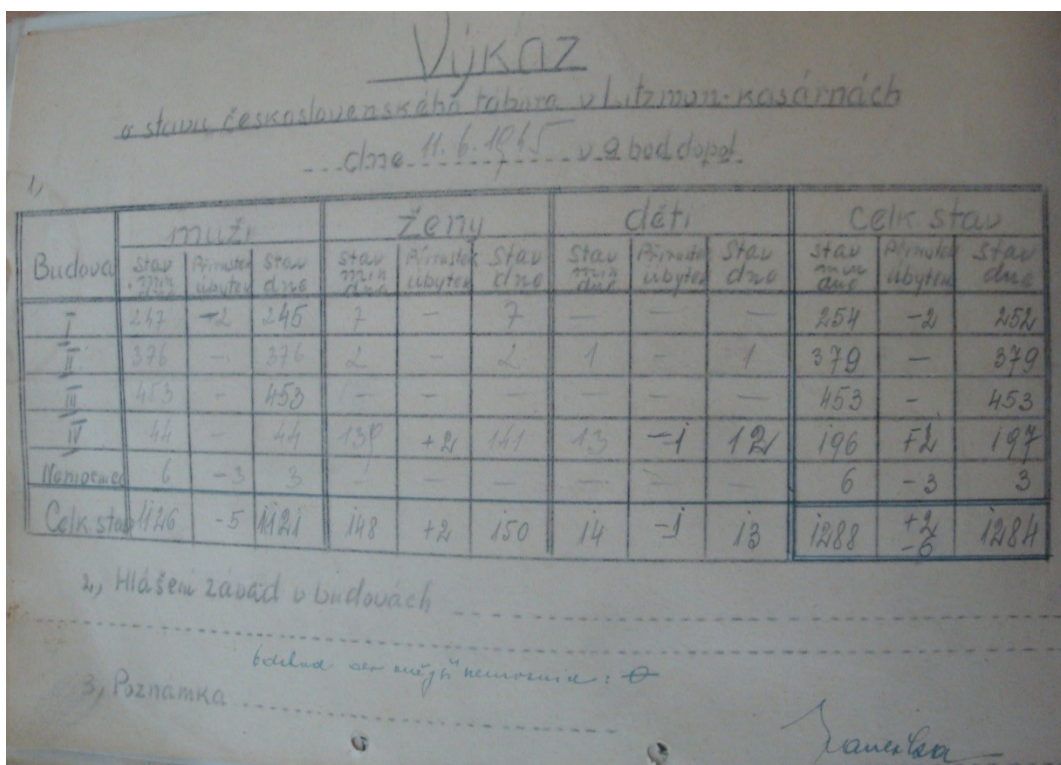 Výkaz
o stavu československého tábora v Litzmon-kasárnách
dne 11. 6. 1945 v 9 hod dopol.
1,
Budova muži ženy děti Celk stav
Stav min dne Přírustek úbytek Stav dne Stav min dne Přírustek úbytek Stav dne Stav min dne Přírustek úbytek Stav dne Stav min dne Přírustek úbytek Stav dne
I 247 -2 245 7 - 7 - - - 254 -2 252
II 376 - 376 2 - 2 1 - 1 379 - 379
III 453 - 453 - - - - - - 453 - 453
IV 44 - 44 139 +2 141 13 -1 12 196 197
Nemocnice 6 -3 3 - - - - - - 6 -3 3
Celk stav 1126 -5 1121 148 +2 150 14 -1 13 1288 +2 -6 1284
2, Hlášení závad v budovách
3, Poznámka